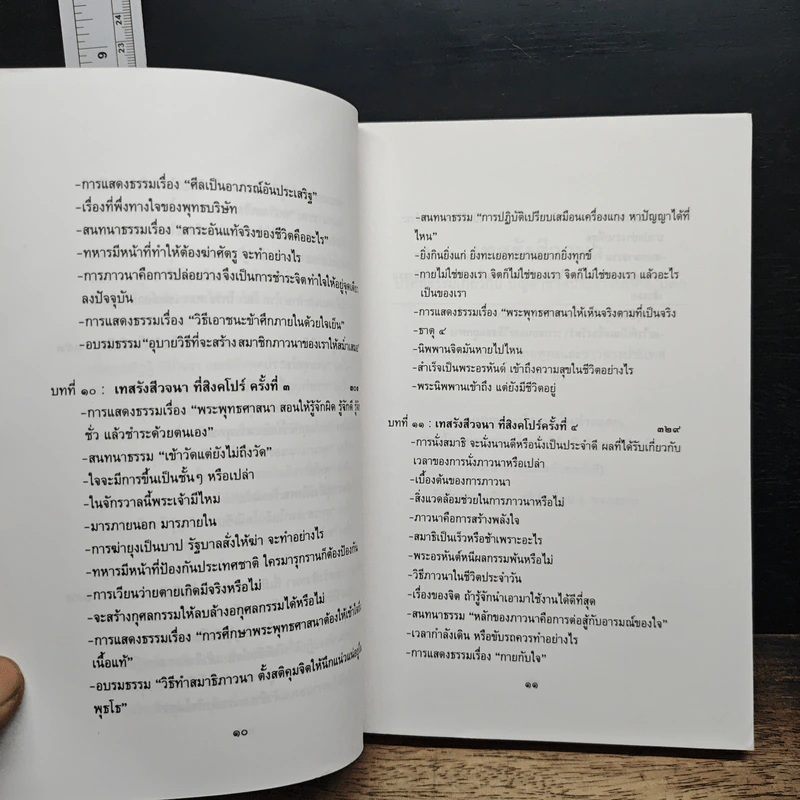 9
23
24
-การแสดงธรรมเรื่อง “ศีลเป็นอาภรณ์อันประเสริฐ”
-เรื่องที่พึ่งทางใจของพุทธบริษัท
-สนทนาธรรมเรื่อง “สาระอันแท้จริงของชีวิตคืออะไร”
-ทหารมีหน้าที่ทำให้ต้องฆ่าศัตรู จะทำอย่างไร
-การภาวนาคือการปล่อยวางจึงเป็นการชำระจิตทำใจให้อยู่จุดเดียว
ลงปัจจุบัน
-การแสดงธรรมเรื่อง “วิธีเอาชนะข้าศึกภายในด้วยใจเย็น”
-อบรมธรรม“อุบายวิธีที่จะสร้าง สมาชิกภาวนาของเราให้สม่ำเสมอ”
บทที่ ๑๐ : เทสรังสีวจนา ที่สิงคโปร์ ครั้งที่ ๓
-การแสดงธรรมเรื่อง “พระพุทธศาสนา สอนให้รู้จักผิด รู้จักดี
ชั่ว แล้วชำระด้วยตนเอง”
-สนทนาธรรม “เข้าวัดแต่ยังไม่ถึงวัด”
-ใจจะมีการขึ้นเป็นชั้นๆ หรือเปล่า
-ในจักรวาลนี้พระเจ้ามีไหม
-มารภายนอก มารภายใน
-การฆ่ายุงเป็นบาป รัฐบาลสั่งให้ฆ่า จะทำอย่างไร
-ทหารมีหน้าที่ป้องกันประเทศชาติ ใครมารุกรานก็ต้องป้องกัน
-การเวียนว่ายตายเกิดมีจริงหรือไม่
-จะสร้างกุศลกรรมให้ลบล้างอกุศลกรรมได้หรือไม่
-การแสดงธรรมเรื่อง “การศึกษาพระพุทธศาสนาต้องให้เข้าใจถึง
เนื้อแท้”
-อบรมธรรม “วิธีทำสมาธิภาวนา ตั้งสติคุมจิตให้นึกแน่วแน่อยู่ใน
พุธโธ”
๑๐
-สนทนาธรรม “การปฏิบัติเปรียบเสมือนเครื่องแกง หาปัญญาได้ที่
ไหน”
-ยิ่งกินยิ่งแก่ ยิ่งทะเยอทะยานอยากยิ่งทุกข์
-กายไม่ใช่ของเรา จิตก็ไม่ใช่ของเรา จิตก็ไม่ใช่ของเรา แล้วอะไร
เป็นของเรา
-การแสดงธรรมเรื่อง “พระพุทธศาสนาให้เห็นจริงตามที่เป็นจริง
-ธาตุ ๔
-นิพพานจิตมันหายไปไหน
-สำเร็จเป็นพระอรหันต์ เข้าถึงความสุขในชีวิตอย่างไร
-พระนิพพานเข้าถึง แต่ยังมีชีวิตอยู่
บทที่ ๑๑ : เทสรังสีวจนา ที่สิงคโปร์ครั้งที่ ๔ ๓๒๙
-การนั่งสมาธิ จะนั่งนานดีหรือนั่งเป็นประจำดี ผลที่ได้รับเกี่ยวกับ
เวลาของการนั่งภาวนาหรือเปล่า
-เบื้องต้นของการภาวนา
-สิ่งแวดล้อมช่วยในการภาวนาหรือไม่
-ภาวนาคือการสร้างพลังใจ
-สมาธิเป็นเร็วหรือช้าเพราะอะไร
-พระอรหันต์หนีผลกรรมพ้นหรือไม่
-วิธีภาวนาในชีวิตประจำวัน
-เรื่องของจิต ถ้ารู้จักนำเอามาใช้งานได้ดีที่สุด
-สนทนาธรรม “หลักของภาวนาคือการต่อสู้กับอารมณ์ของใจ”
-เวลากำลังเดิน หรือขับรถควรทำอย่างไร
-การแสดงธรรมเรื่อง “กายกับใจ”
๑๑